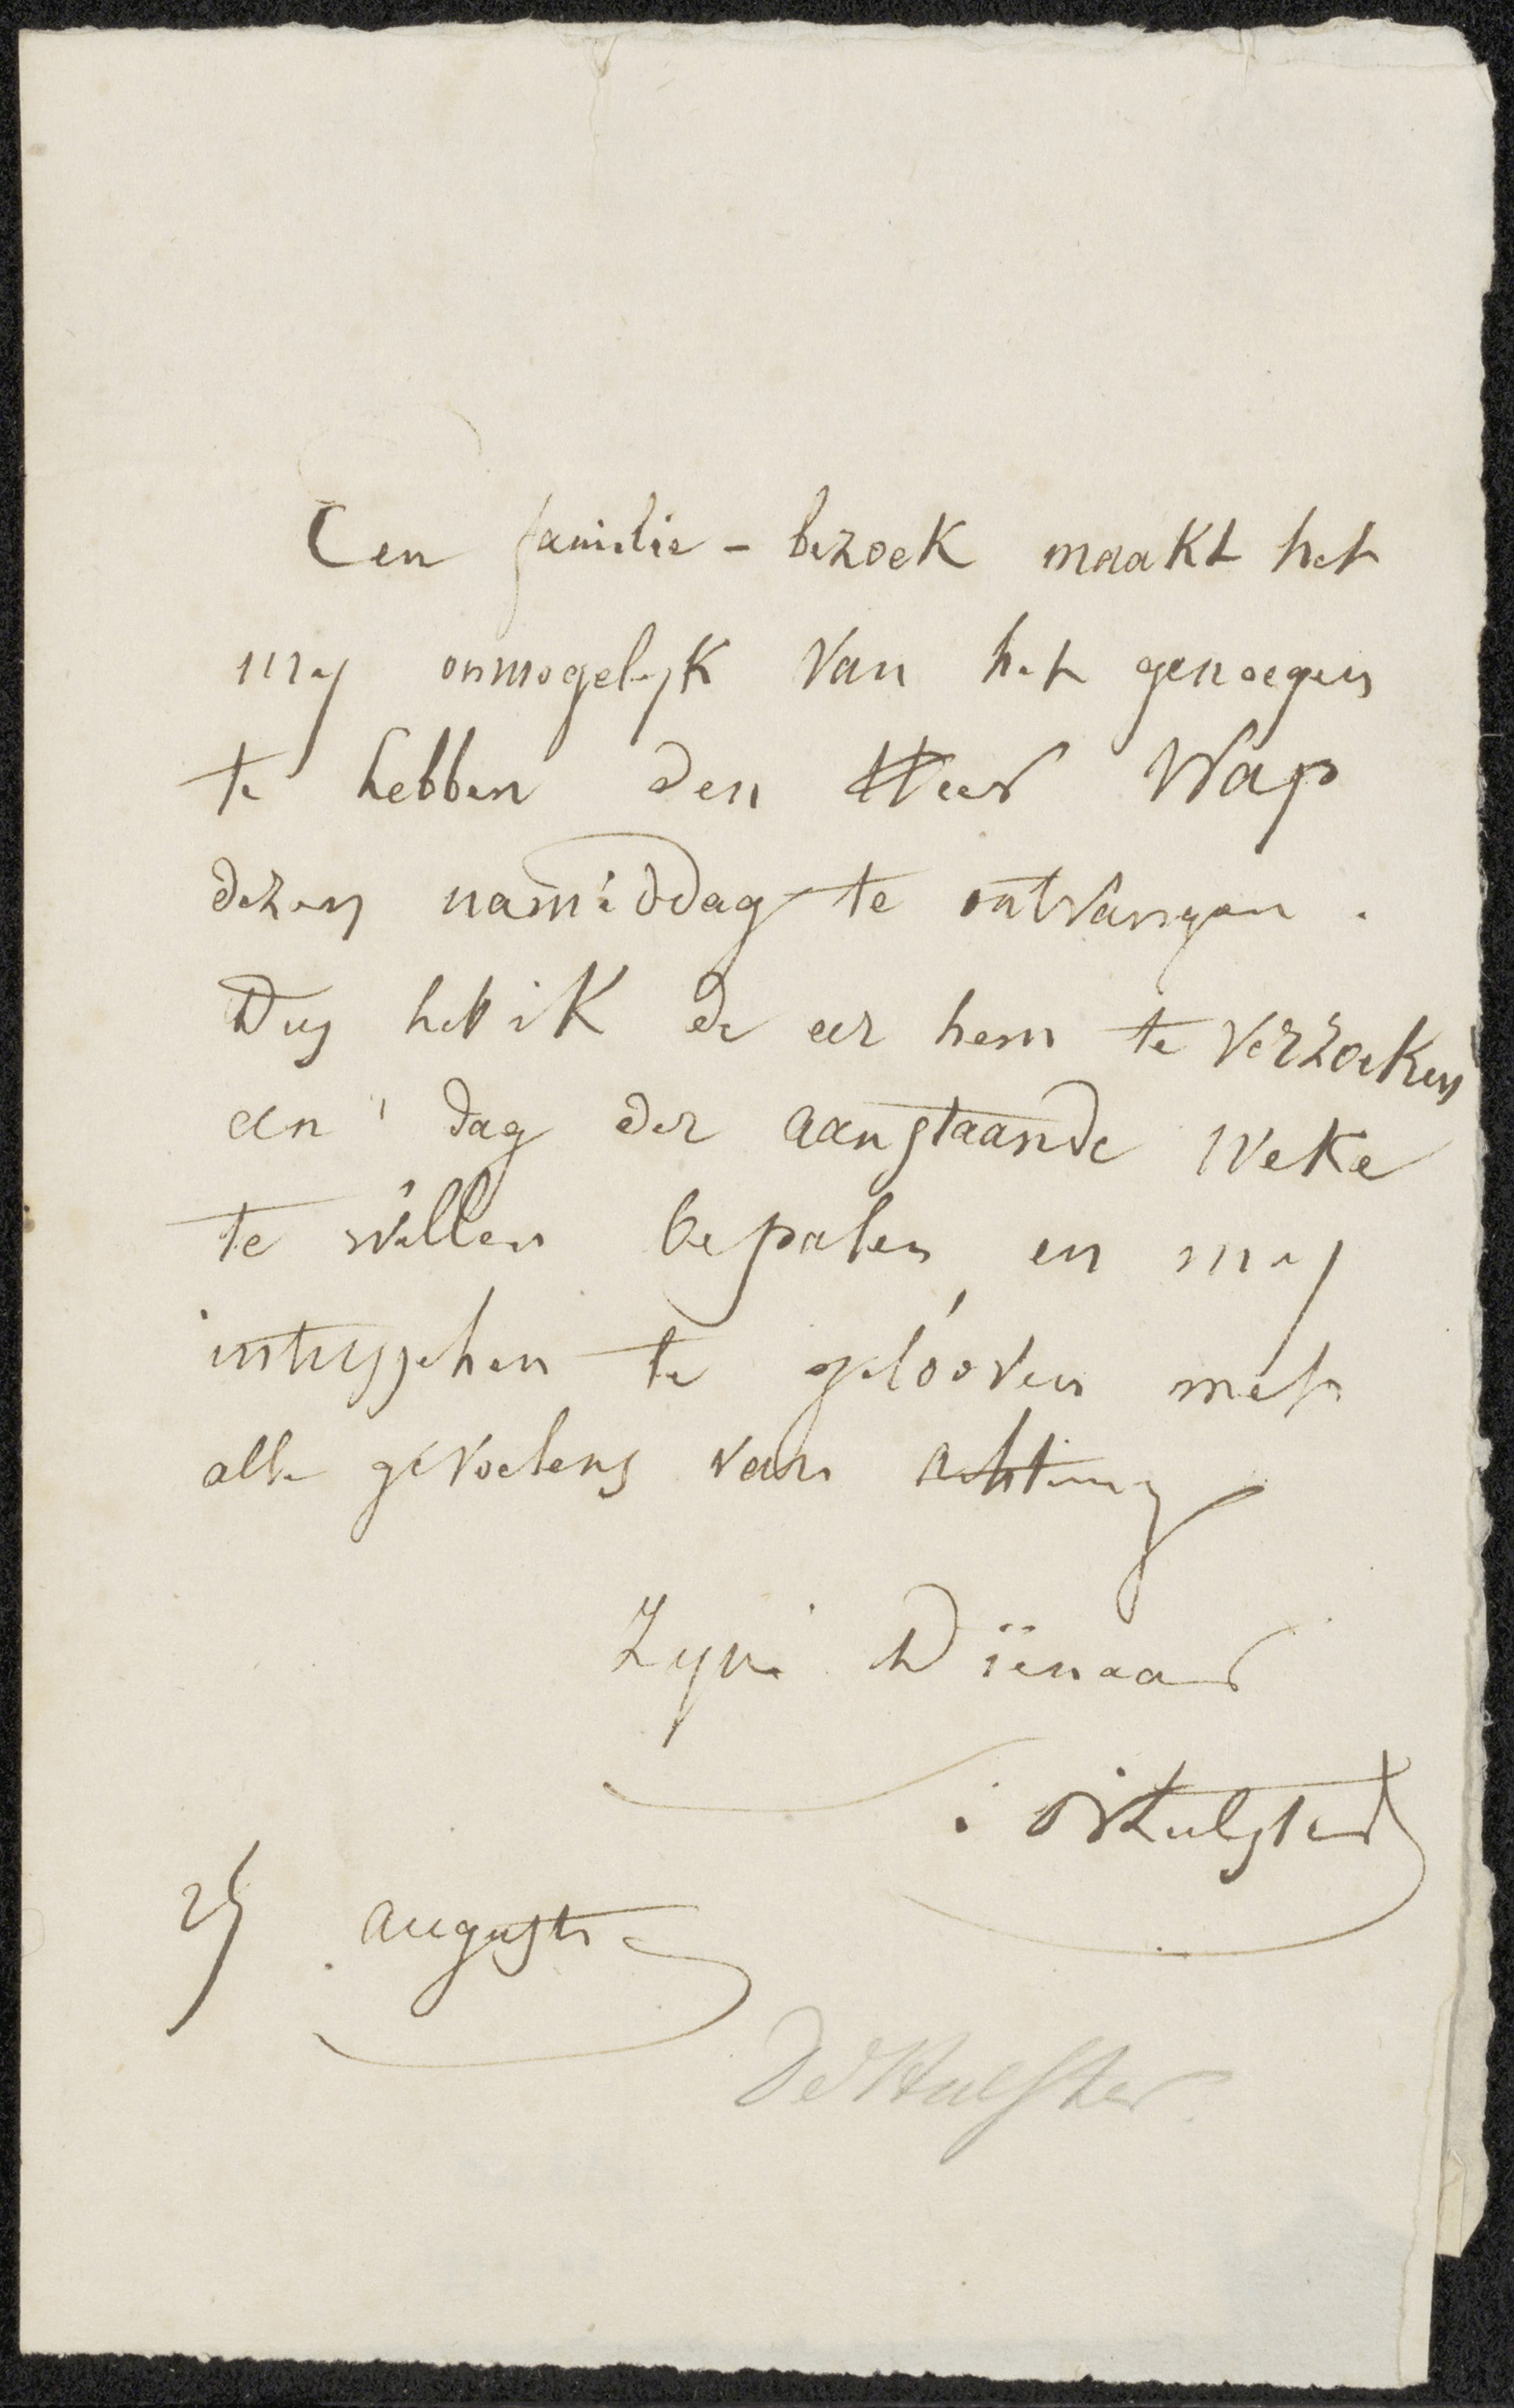 Een familie-bezoek maakt het
my onmogelyk van het genoegen
te hebben den Heer Wap
dezen namiddag te ontvangen.
Dus heb ik de eer hem te verzoeken
een dag der aanstaande weke
te willen bepalen, en my
intusschen te gelooven met
alle gevoelens van achting
Zyn Dienaar
25 augusti
De Hulster